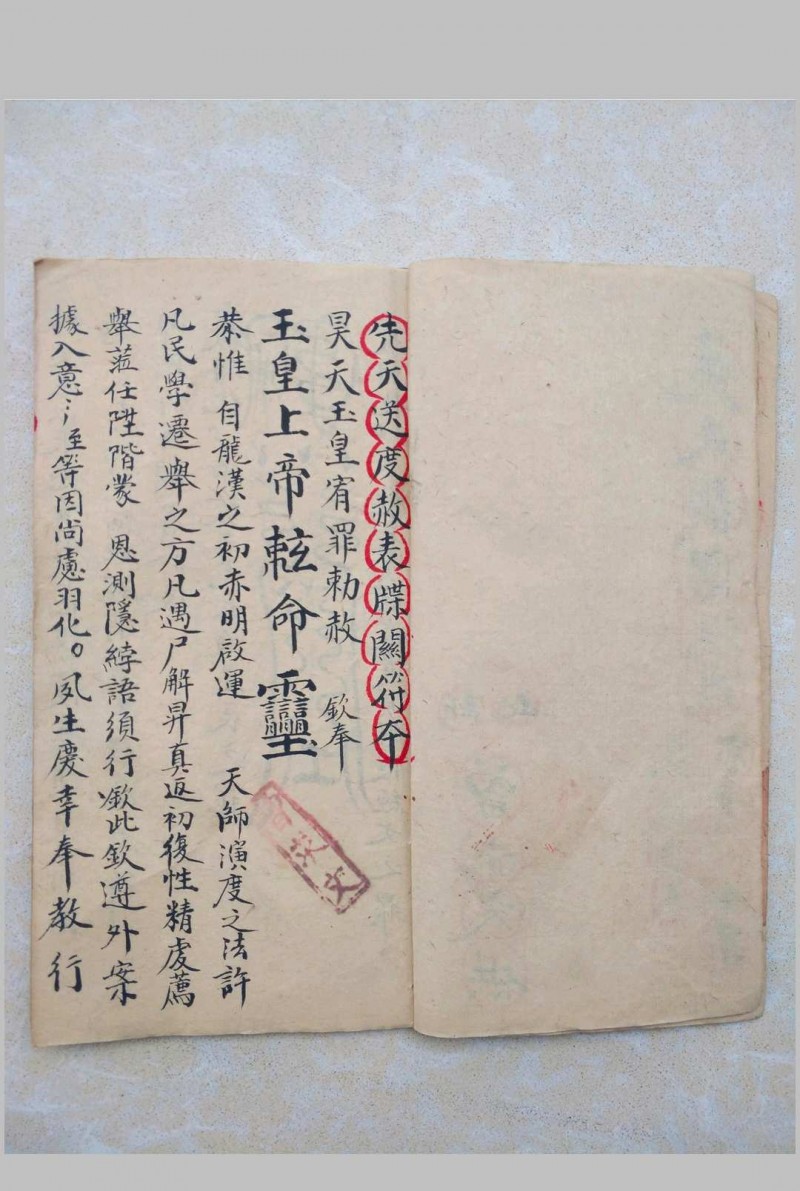 先天送度赦表牒關符本
昊天玉皇宥罪勅赦 欽奉
玉皇上帝 命靈
恭惟 自龍漢之初赤明啟運 天師演度之法許
凡民學遷舉之方凡遇尸解昇真返初復性精虔薦
舉蒞任陞階蒙 恩測隱 語須行欽此欽遵外案
據入意 至等因尚慮羽化。夙生慶幸奉教行